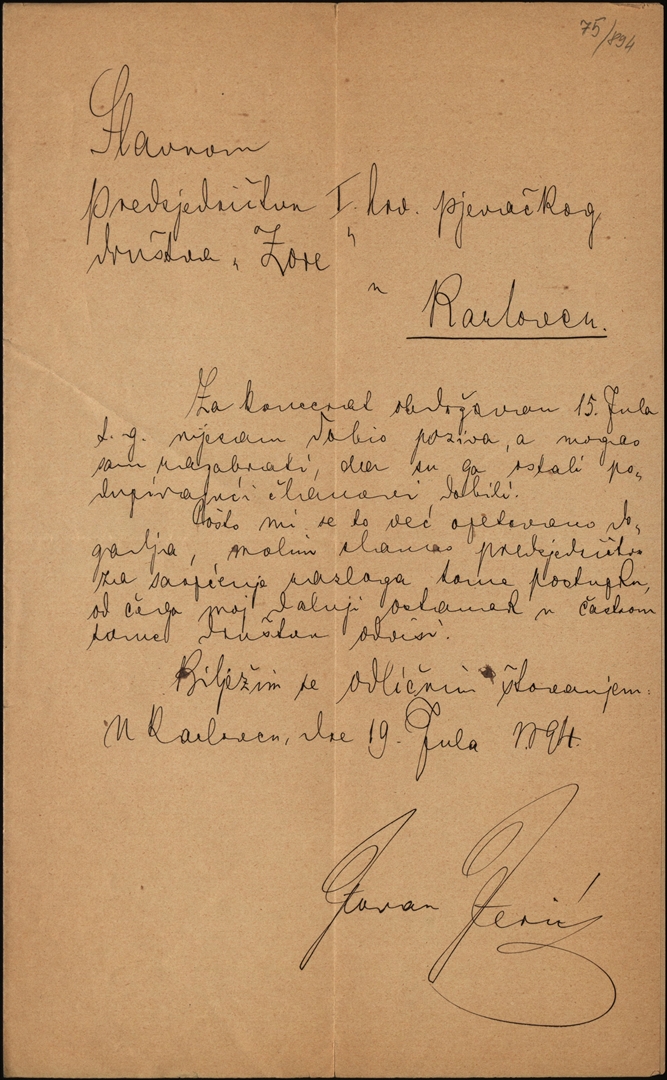 75/894
Slavnom
predsjedničtvu I. hrv. pjevačkog
društva „Zore"
u
Karlovcu.
Za koncerat obdržavan 15. Jula
t. g. nijesam dobio poziva, a mogao
sam razabrati, da su ga ostali po-
dupirajući članovi dobili.
Pošto mi se to već opetovano do-
gadja, molim slavno predsjedničtvo
za saobćenje razloga tome postupku,
od čega moj daljnji ostanak u častnom
tome društvu odvisi.
Bilježim se odličnim štovanjem:
U Karlovcu, dne 19. Jula 1894.